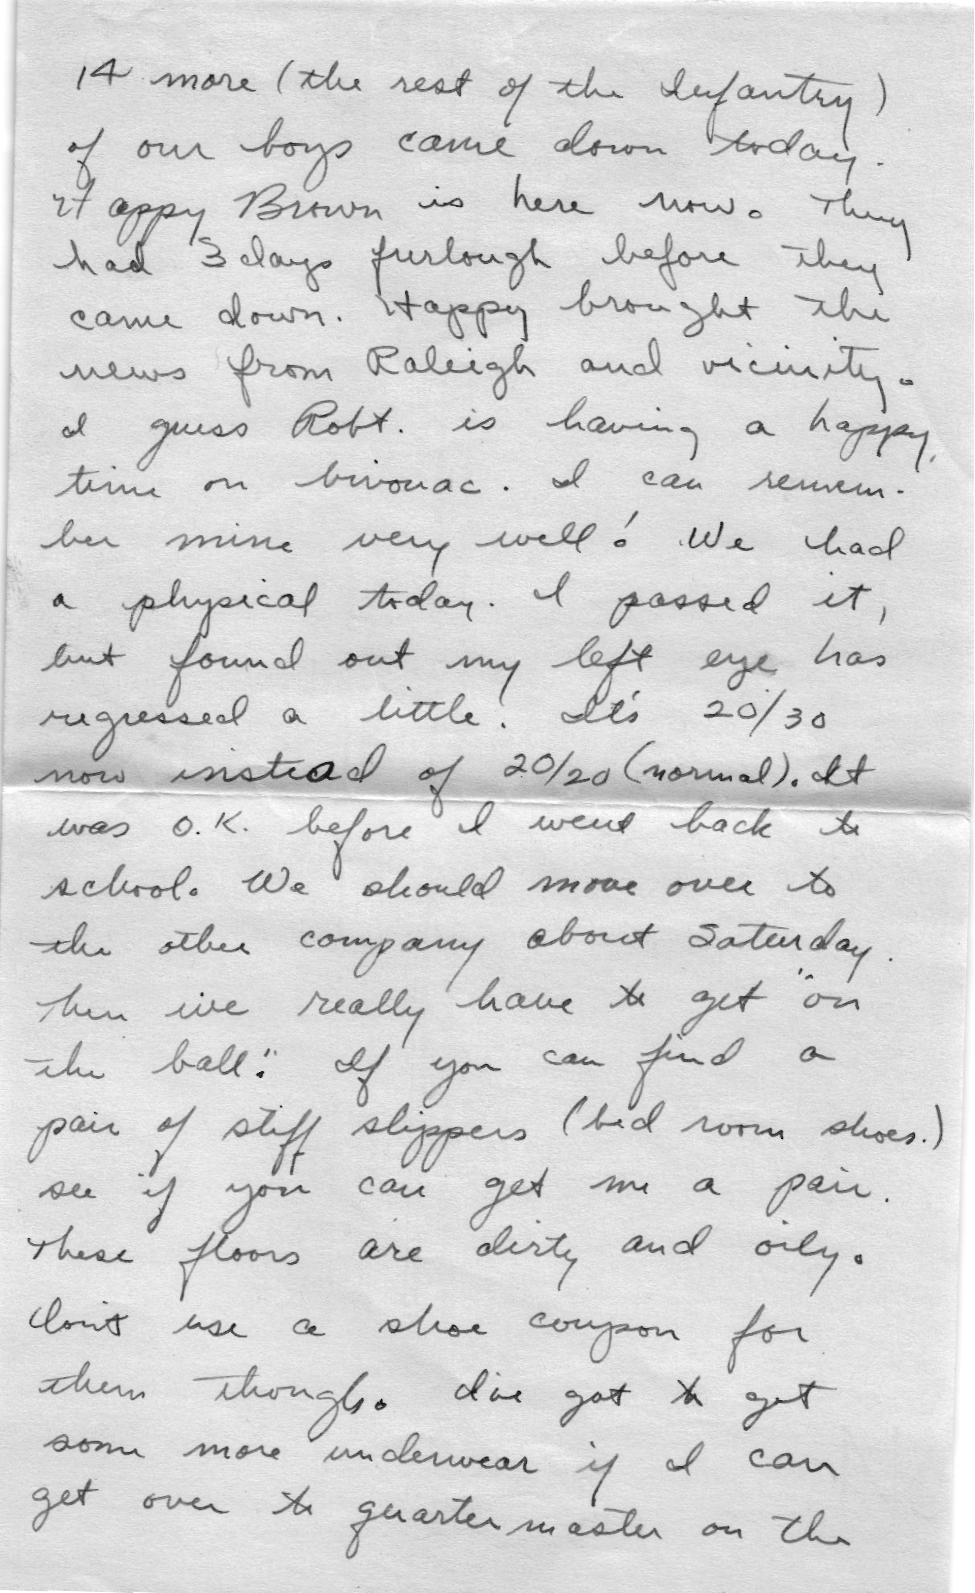 14 more (the rest of the Infantry)
of our boys came down today.
Happy Brown is here now. They
had 3 days furlough before they
came down. Happy brought the
news from Raleigh and vicinity.
I guess Robt. is having a happy
time on bivouac. I can remem-
ber mine very well! We had
a physical today. I passed it,
but found out my left eye has
regressed a little. It's 20/30
now instead of 20/20 (normal). It
was O.K. before I went back to
school. We should move over to
the other company about Saturday.
Then we really have to get "on
the ball". If you can find a
pair of stiff slippers (bed room shoes.)
see if you can get me a pair.
These floors are dirty and oily.
Don't use a shoe coupon for
them though. I've got to get
some more underwear if I can
get over to quartermaster on the